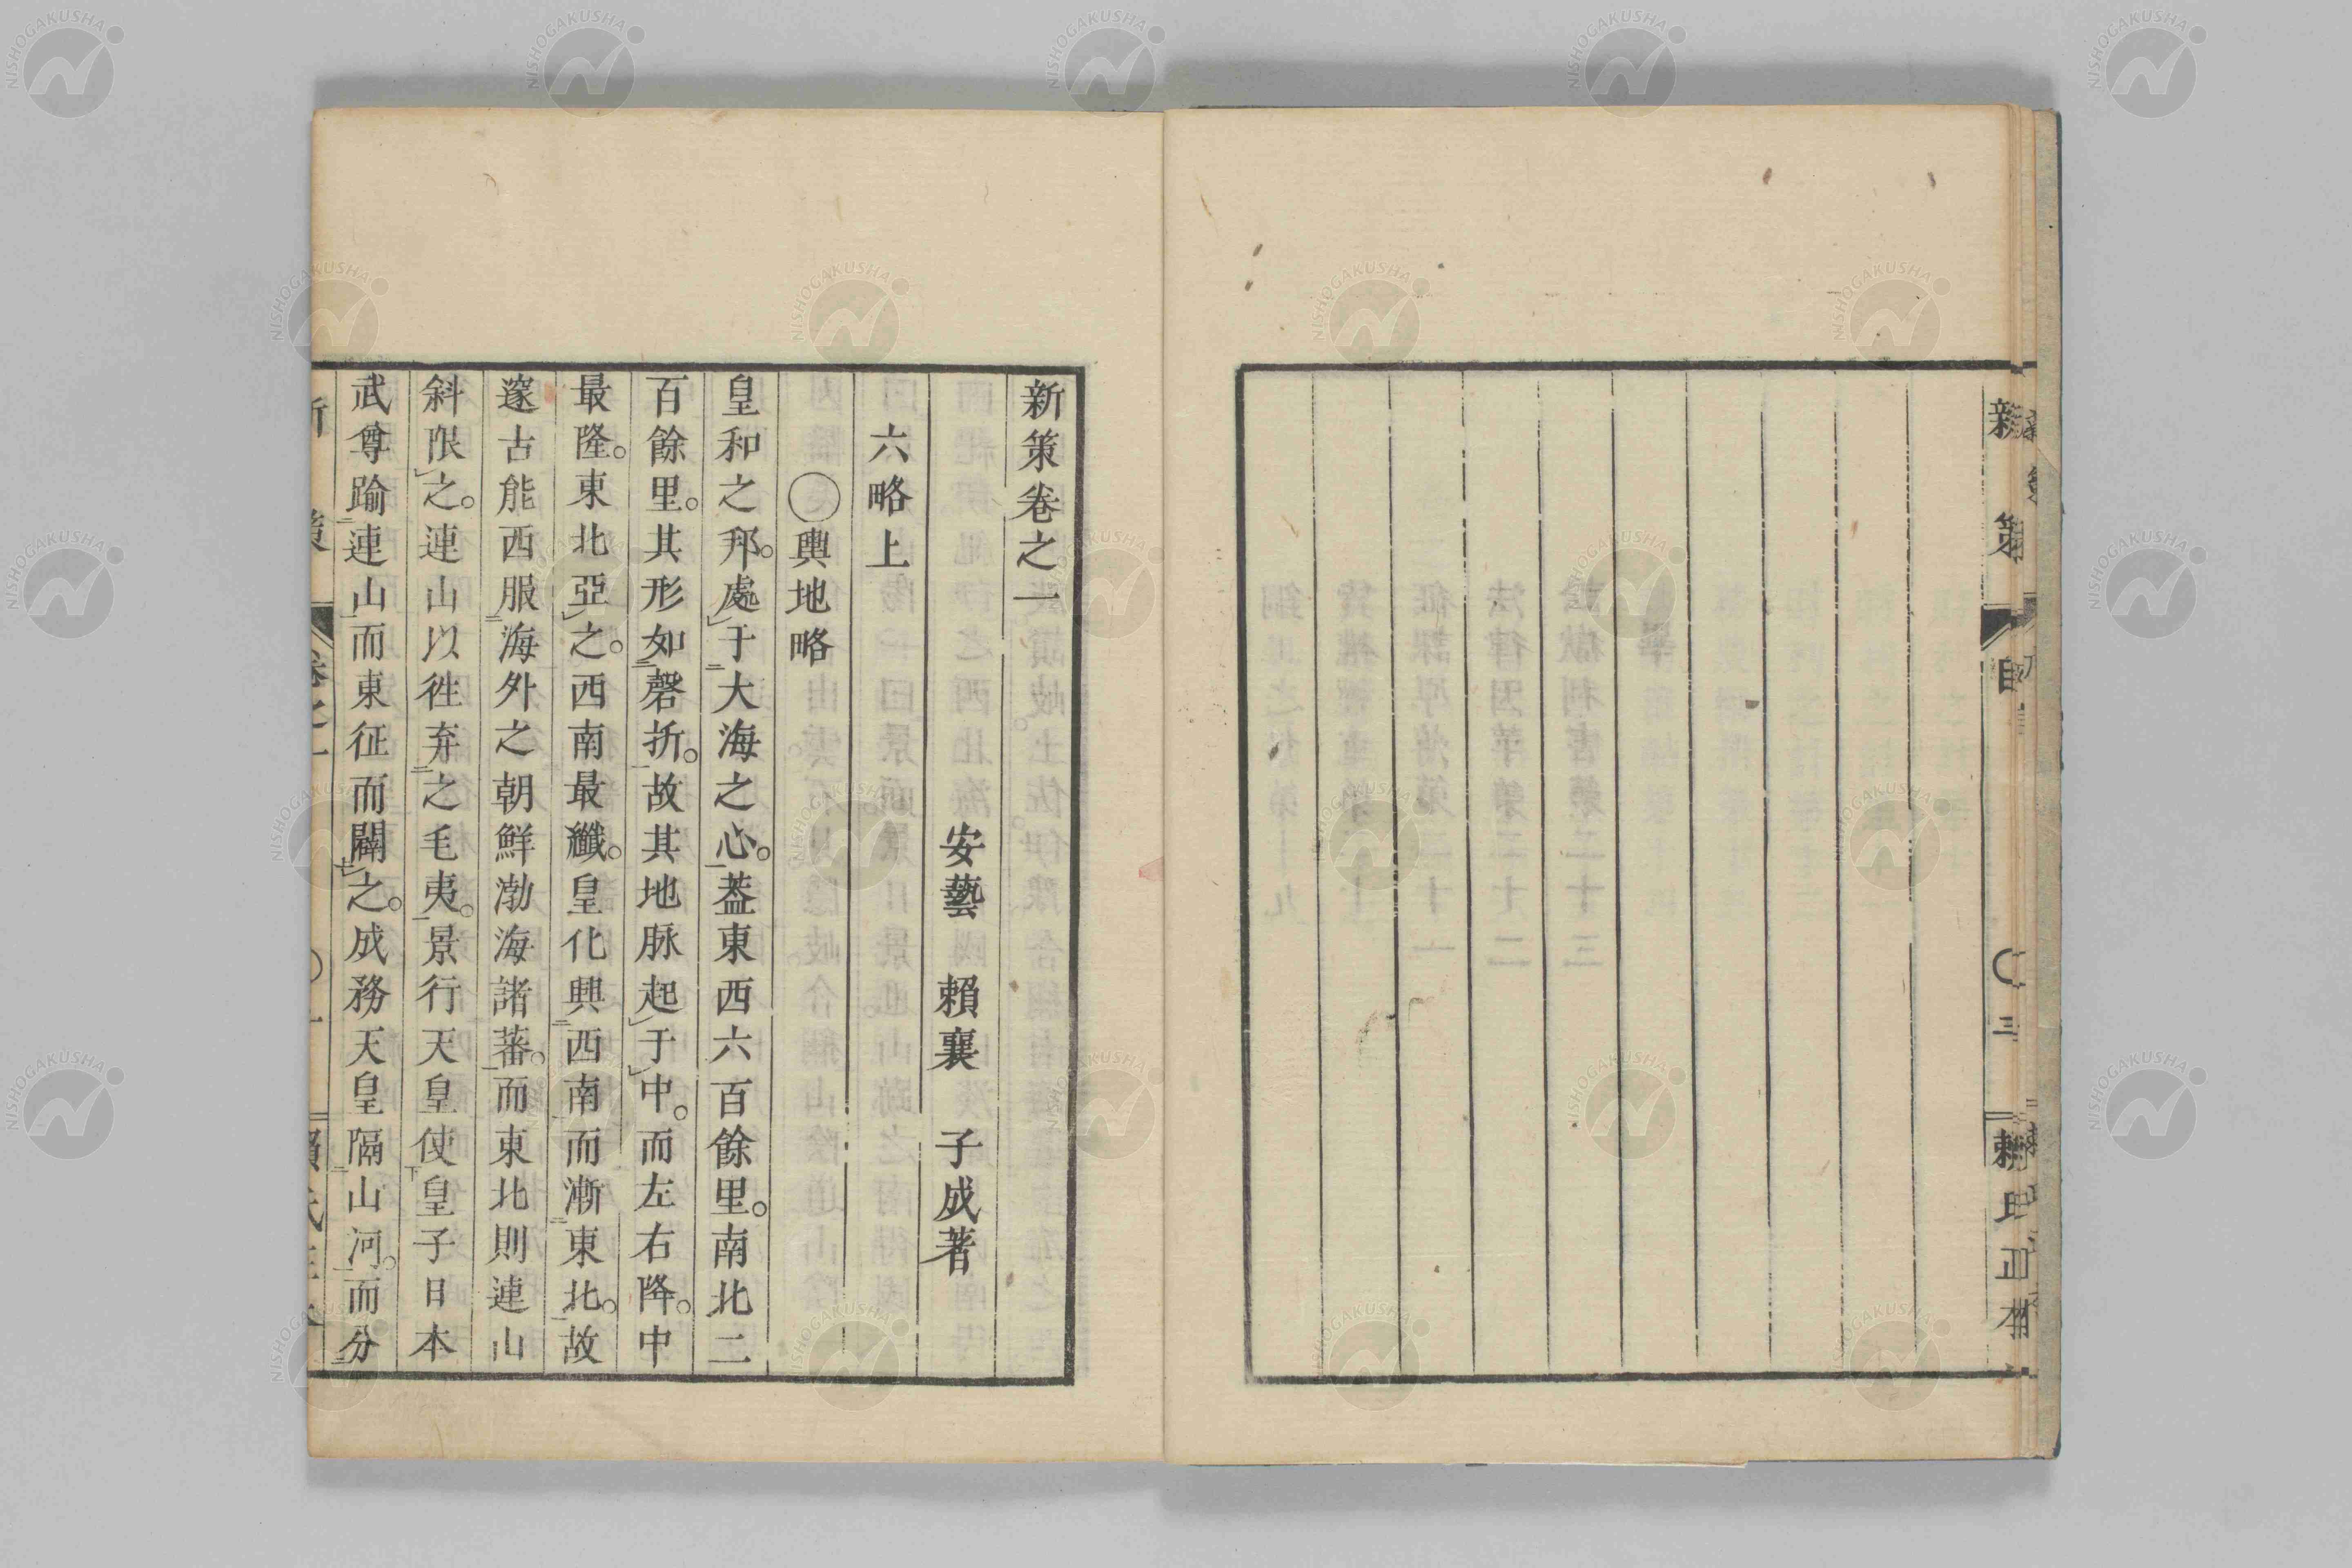 新策卷之一
安藝 賴襄 子成著
六略上
○輿地略
皇和之邦。處于大海之心。葢東西六百餘里。南北二
百餘里。其形如磬折。故其地脉起于中。而左右降。中
最隆。東北亞之。西南最纖。皇化興西南而漸東北。故
邃古能西服海外之朝鮮渤海諸蕃。而東北則連山
斜限之。連山以徃弃之毛夷。景行天皇使皇子日本
武尊踰連山而東征而闢之。成務天皇隔山河。而分
NISHOGAKUSHA